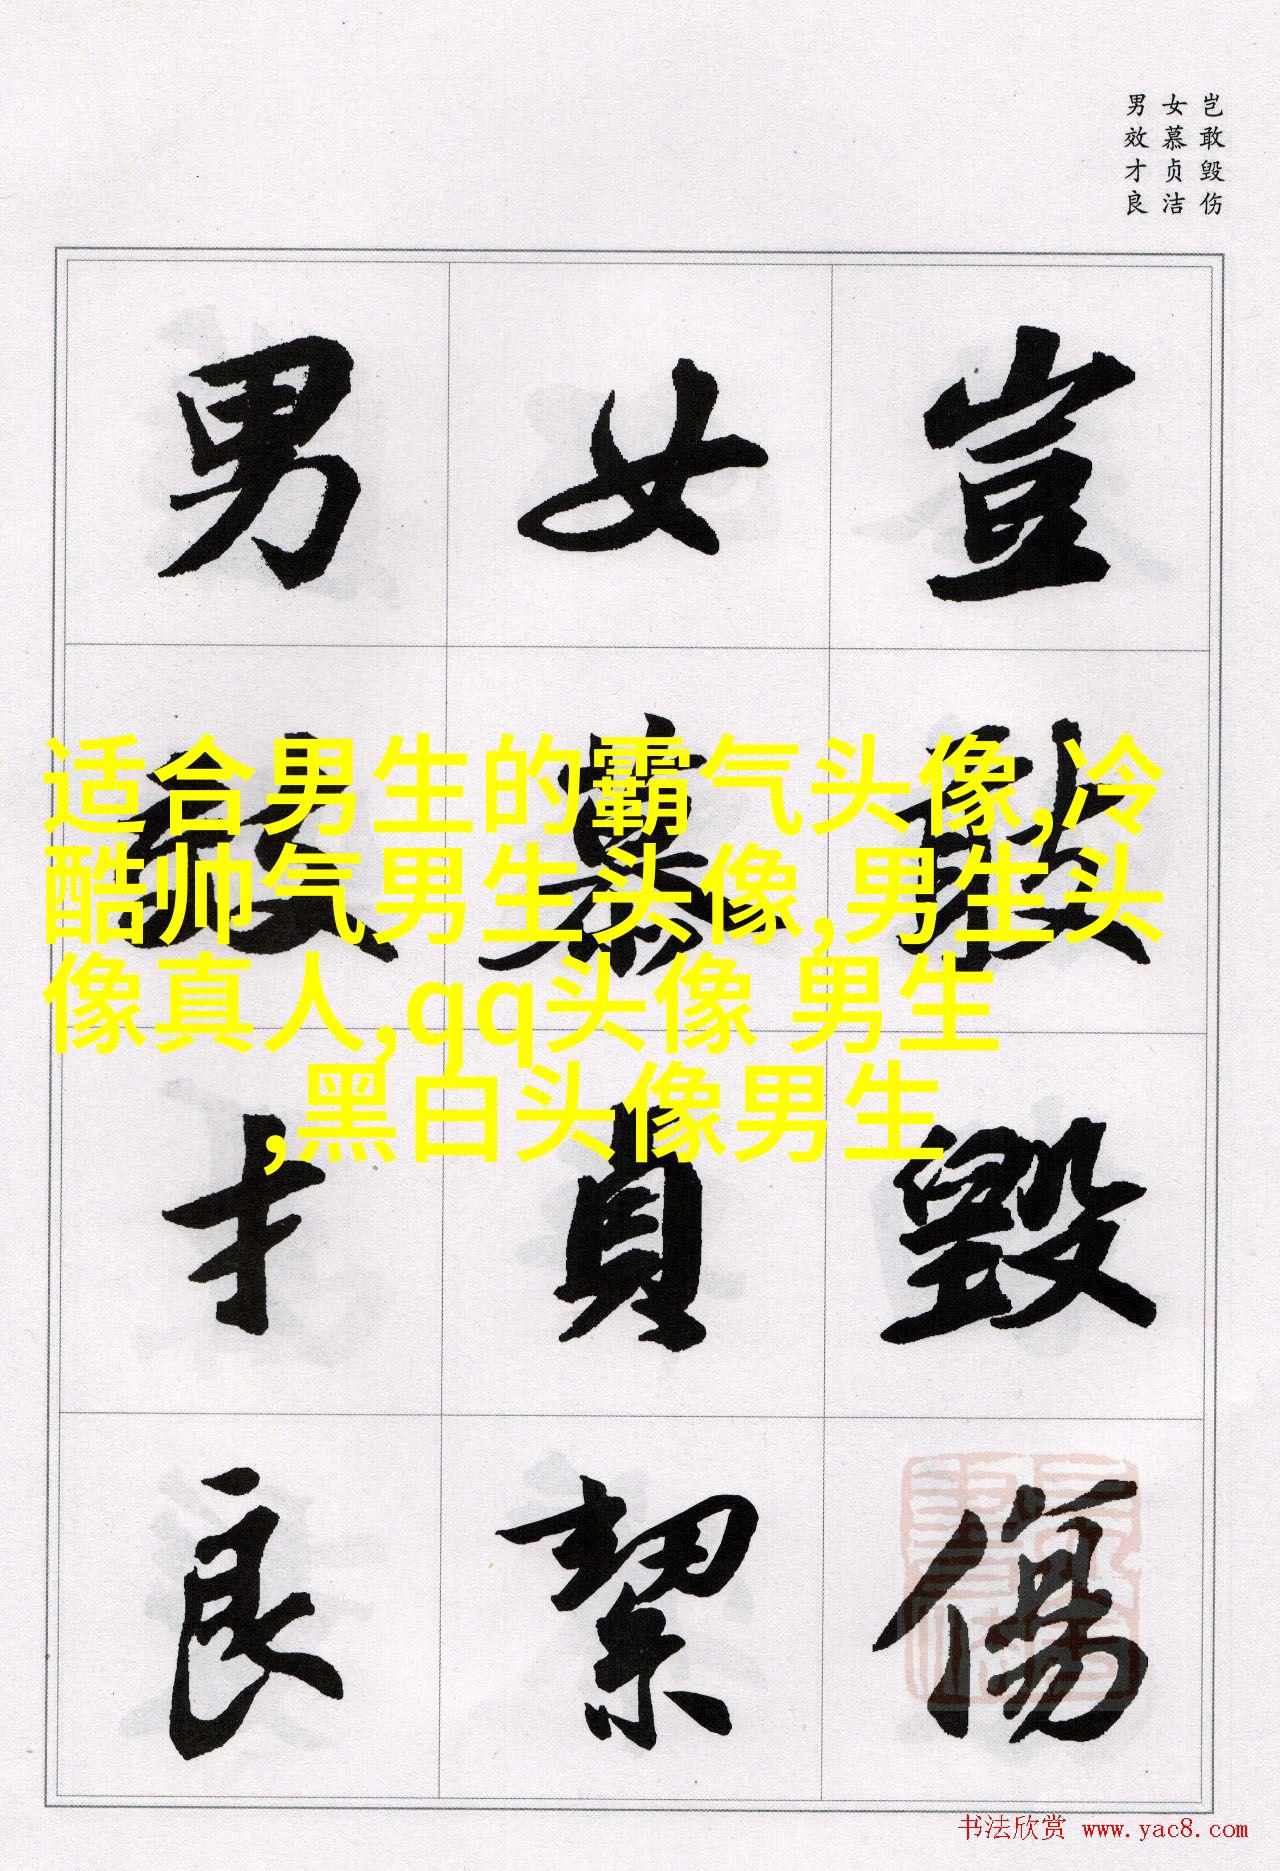 岂敢毁伤
女慕贞洁
男效才良
豈敢毀傷
女慕貞絜
男效才良
适合男生的霸气头像,冷
酷帅气男生头像,男生头
像真人,qq头像 男生
,黑白头像男生
书法欣赏 www.yac8.com